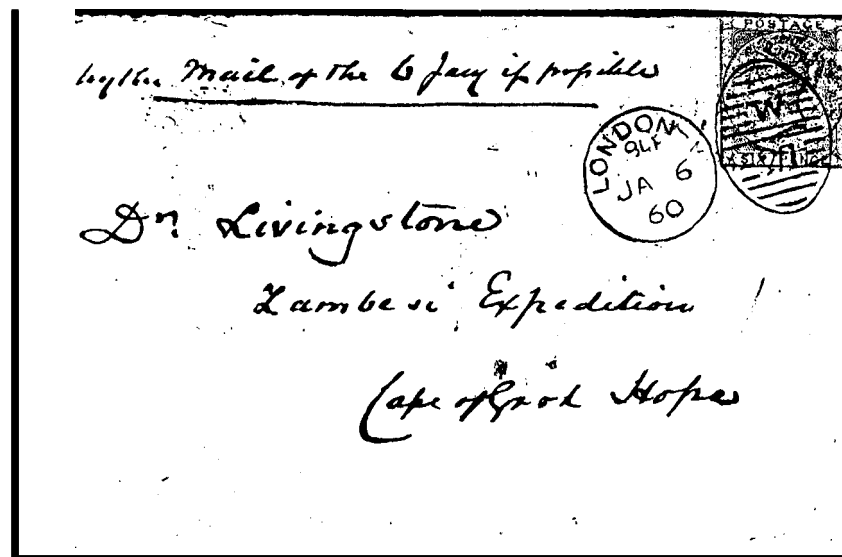 by the Mail of the 6 Jany if possible
POSTAGE
SIX PENCE
W
LONDON
JA 6
60
Dr. Livingstone
Zambesi Expedition
Cape of Good Hope